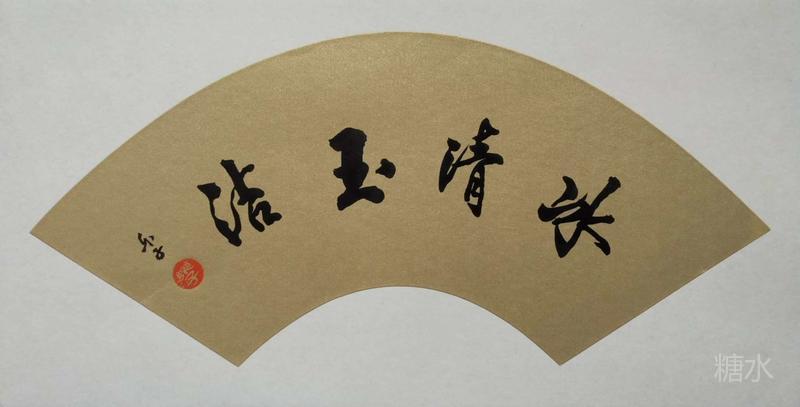 冰清玉洁
糖水